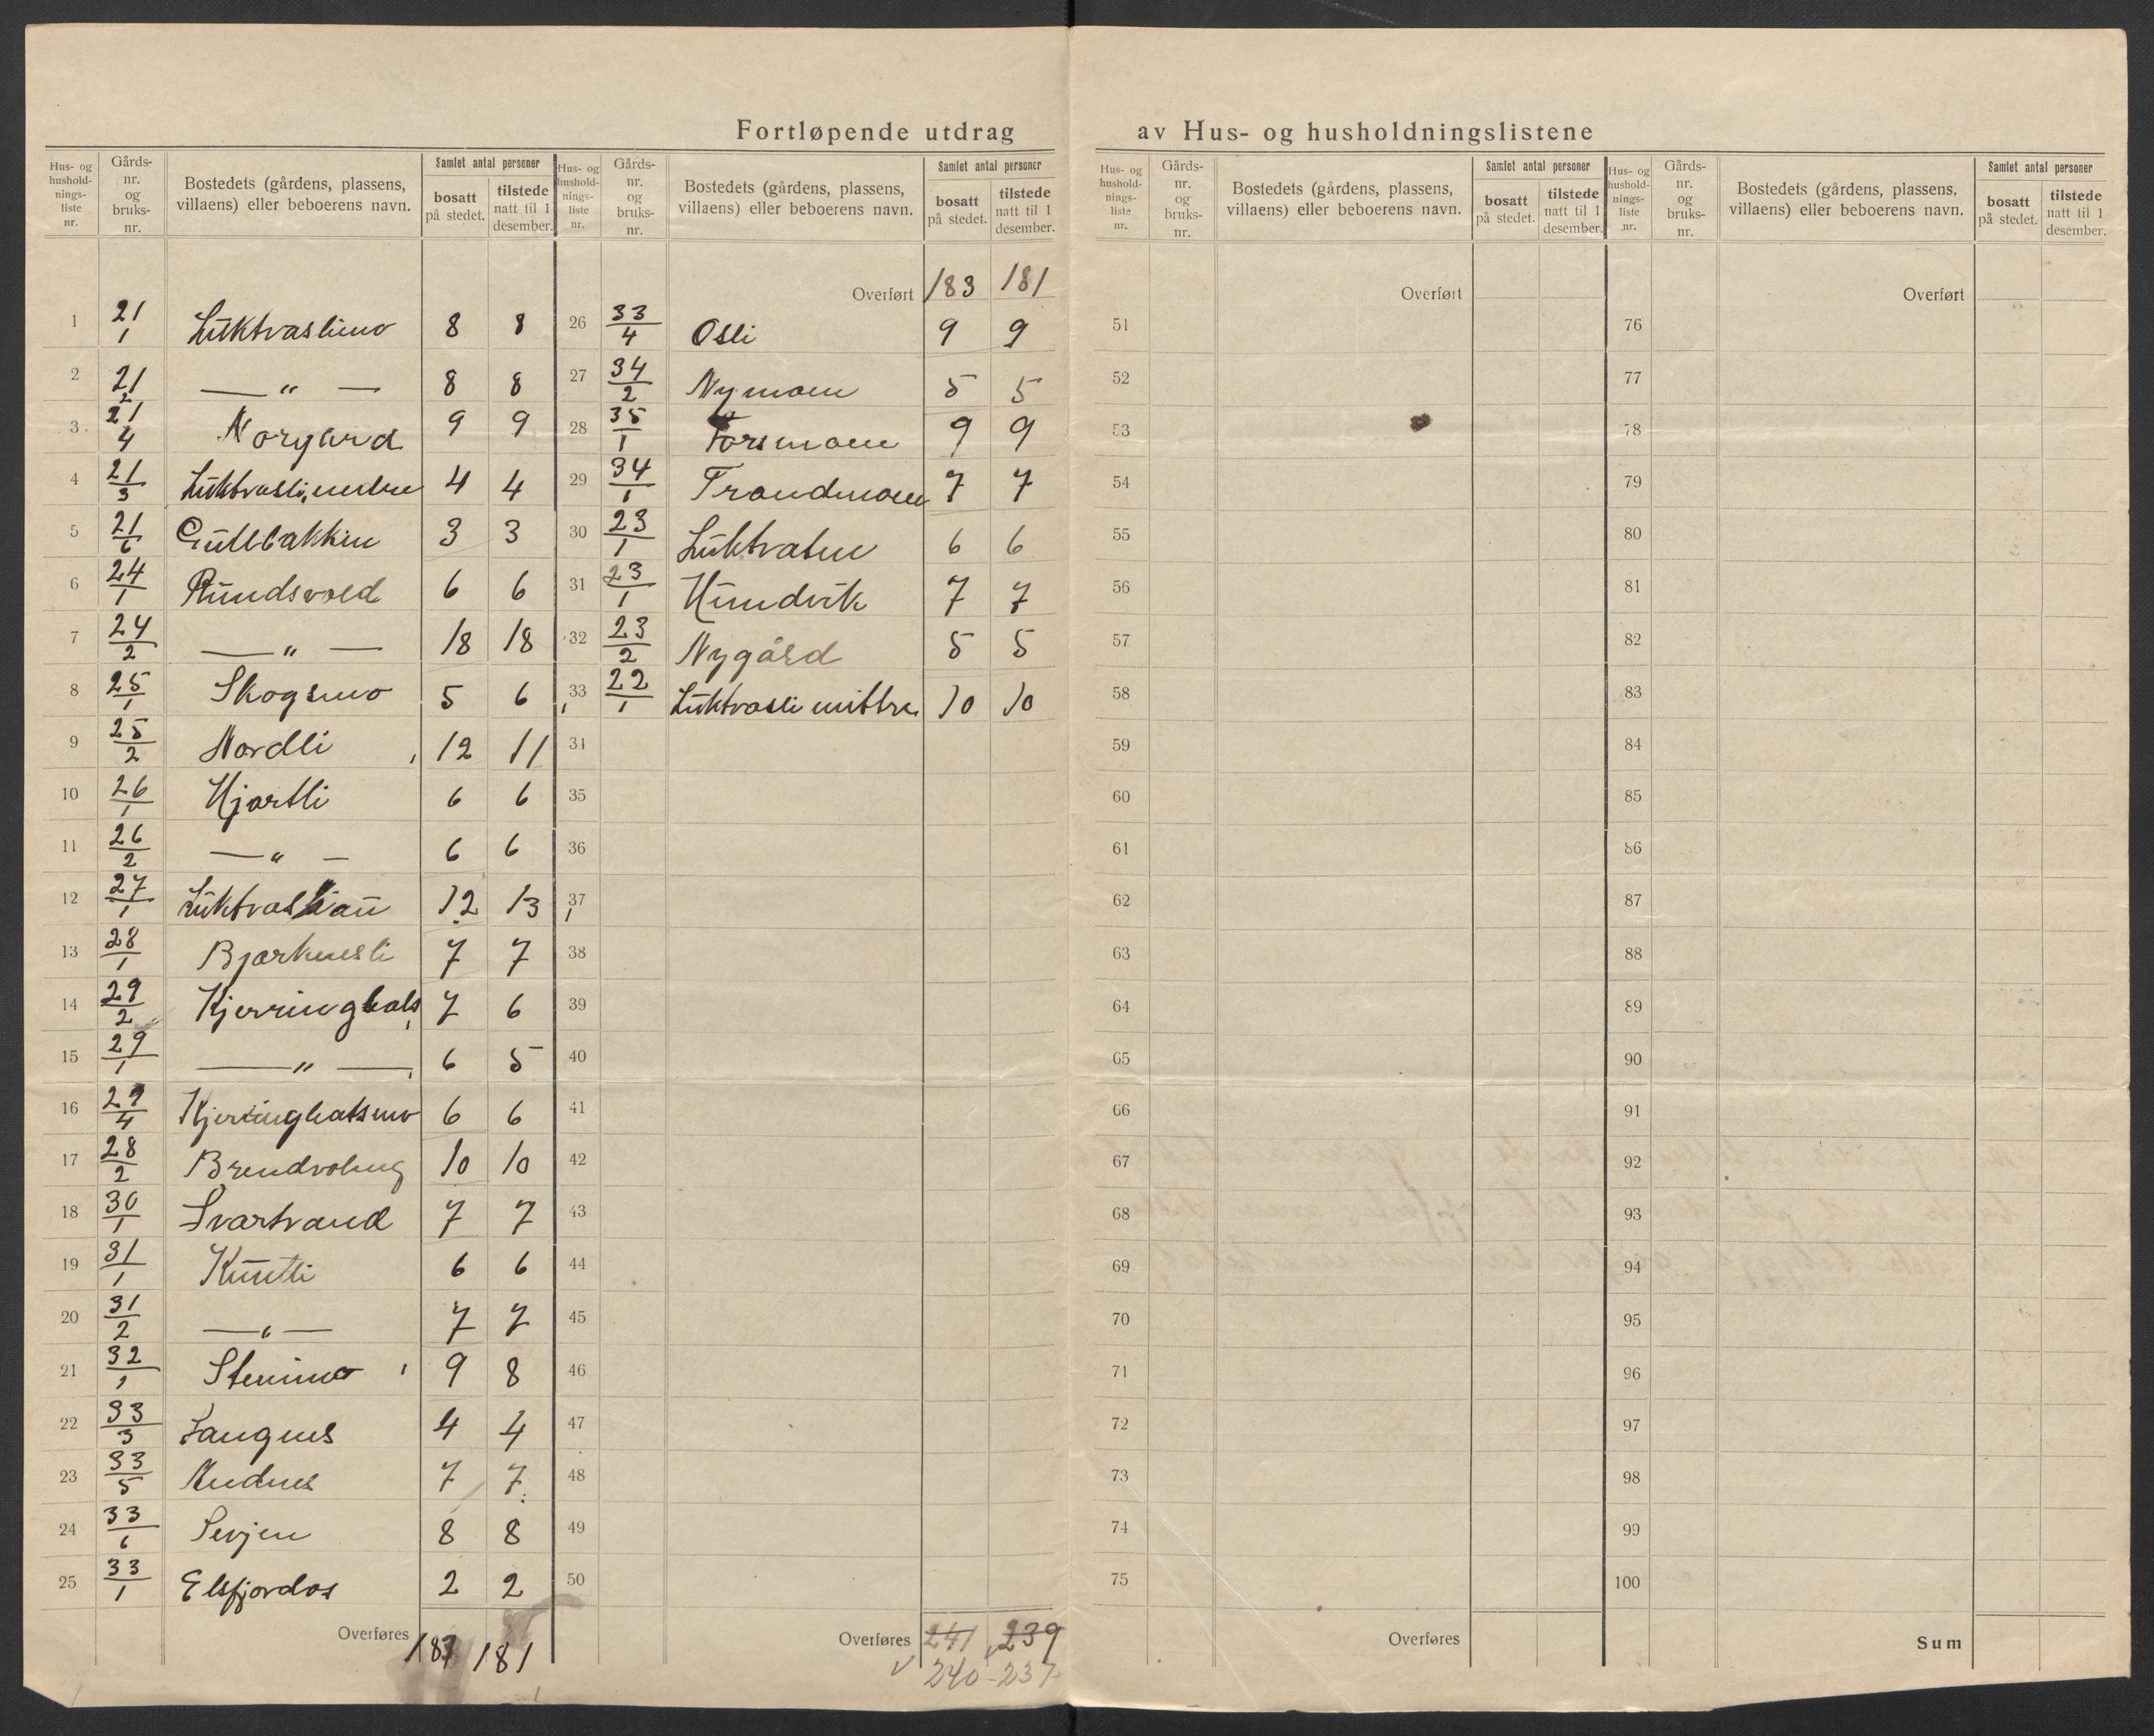 Fortløpende utdrag av Hus- og husholdningslistene
Hus- og hushold- nings- liste nr. | Gårds- nr. og bruks- nr. | Bostedets (gårdens, plassens, villaens) eller beboerens navn. | Samlet antal personer | bosatt på stedet. | tilstede natt til 1 desember.
1 21/1 Luktvaslimo 8 8
2 21/2 — „ — 8 8
3 21/4 Norgård 9 9
4 21/3 Luktvasli, nedre 4 4
5 21/6 Gullbakken 3 3
6 24/1 Rundsvold 6 6
7 24/2 — „ — 18 18
8 25/1 Skogsmo 5 6
9 25/2 Nordli 12 11
10 26/1 Hjartli 6 6
11 26/2 — „ — 6 6
12 27/1 Luktvasliau 12 13
13 28/1 Bjørknesli 7 7
14 29/2 Kjerringhals 7 6
15 29/1 — „ — 6 5
16 29/4 Kjerringhalsmo 6 6
17 28/2 Brendvolleng 10 10
18 30/1 Svartvand 7 7
19 31/1 Kuntli 6 6
20 31/2 — „ — 7 7
21 32/1 Stenmo 9 8
22 33/3 Langnes 4 4
23 33/5 Andnes 7 7
24 33/6 8 8
25 33/1 Elsfjordos 2 2
Overføres 183 181
Hus- og hushold- nings- liste nr. | Gårds- nr. og bruks- nr. | Bostedets (gårdens, plassens, villaens) eller beboerens navn. | Samlet antal personer | bosatt på stedet. | tilstede natt til 1 desember.
Overført 183 181
26 33/4 Osli 9 9
27 34/2 Nymoen 5 5
28 35/1 Forsmoen 9 9
29 34/1 Trandmoen 7 7
30 23/1 Luktvatn 6 6
31 23/1 Hundvik 7 7
32 23/2 Nygård 5 5
33 22/1 Luktvasli mittre 10 10
34
35
36
37
38
39
40
41
42
43
44
45
46
47
48
49
50
Overføres 241 239
240 - 237
Hus- og hushold- nings- liste nr. | Gårds- nr. og bruks- nr. | Bostedets (gårdens, plassens, villaens) eller beboerens navn. | Samlet antal personer | bosatt på stedet. | tilstede natt til 1 desember.
Overført
51
52
53
54
55
56
57
58
59
60
61
62
63
64
65
66
67
68
69
70
71
72
73
74
75
Overføres
Hus- og hushold- nings- liste nr. | Gårds- nr. og bruks- nr. | Bostedets (gårdens, plassens, villaens) eller beboerens navn. | Samlet antal personer | bosatt på stedet. | tilstede natt til 1 desember.
Overført
76
77
78
79
80
81
82
83
84
85
86
87
88
89
90
91
92
93
94
95
96
97
98
99
100
Sum